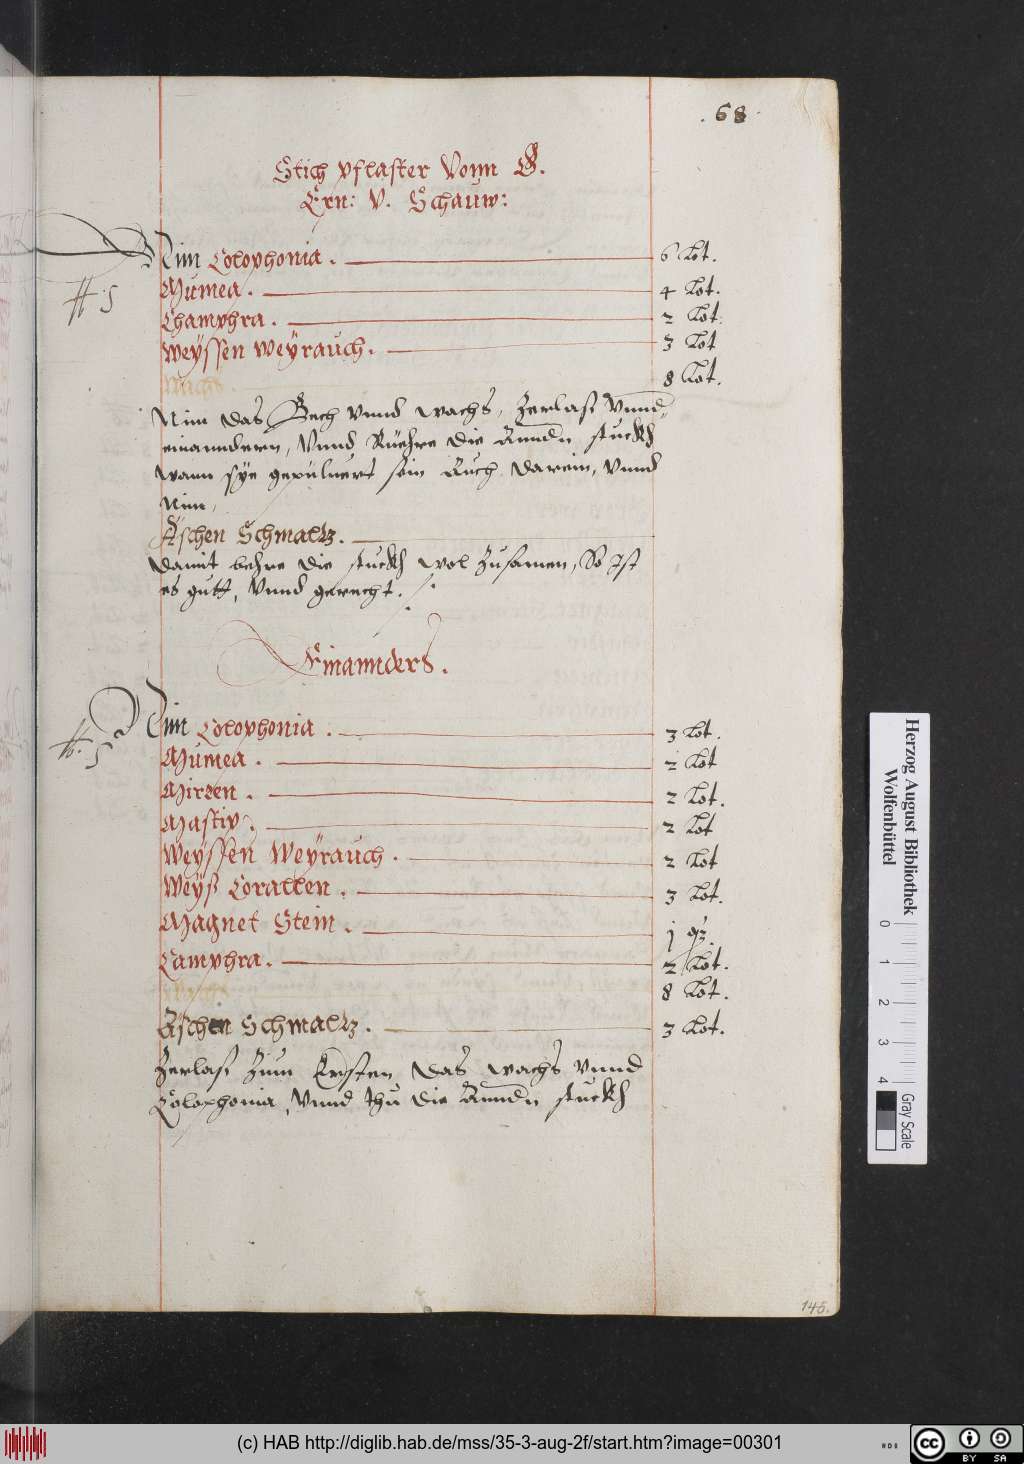 68
Stich pflaster Vonn G.
Ern: V. Schauw:
Nim Colophonia. 6 Lot.
H. 5
Mumea. 4 Lot.
Champhra. 2 Lot.
Weÿssen Weÿrauch. 3 Lot
Wachs. 8 Lot.
Nim das Bech vnnd wachs, Zerlass Vnnd
einanndern, Vnnd Rüehre die Anndn stuckh
wann sÿe gepuluert sein Auch darein, Vnnd
Nim,
Aschen Schmaltz.
damit behre die stuckh wol Zusamen, So Ist
es gutt, Vnnd gerecht.
Einannders.
Nim Colophonia. 3 Lot.
H. 5
Mumea. 2 Lot
Mirren. 2 Lot.
Mastix. 2 Lot
Weÿssen Weÿrauch. 2 Lot
Weÿß Corallen. 3 Lot.
Magnet Stein. j q̃z.
Camphra. 2 Lot.
Wachs 8 Lot.
Aschen Schmaltz. 3 Lot.
Zerlass Zum Ersten das wachs Vnnd
Colophonia, Vnnd thu die Anndn stuckh
145.
Herzog August Bibliothek
Wolfenbüttel
0 1 2 3 4
Gray Scale
(c) HAB http://diglib.hab.de/mss/35-3-aug-2f/start.htm?image=00301
cc BY SA